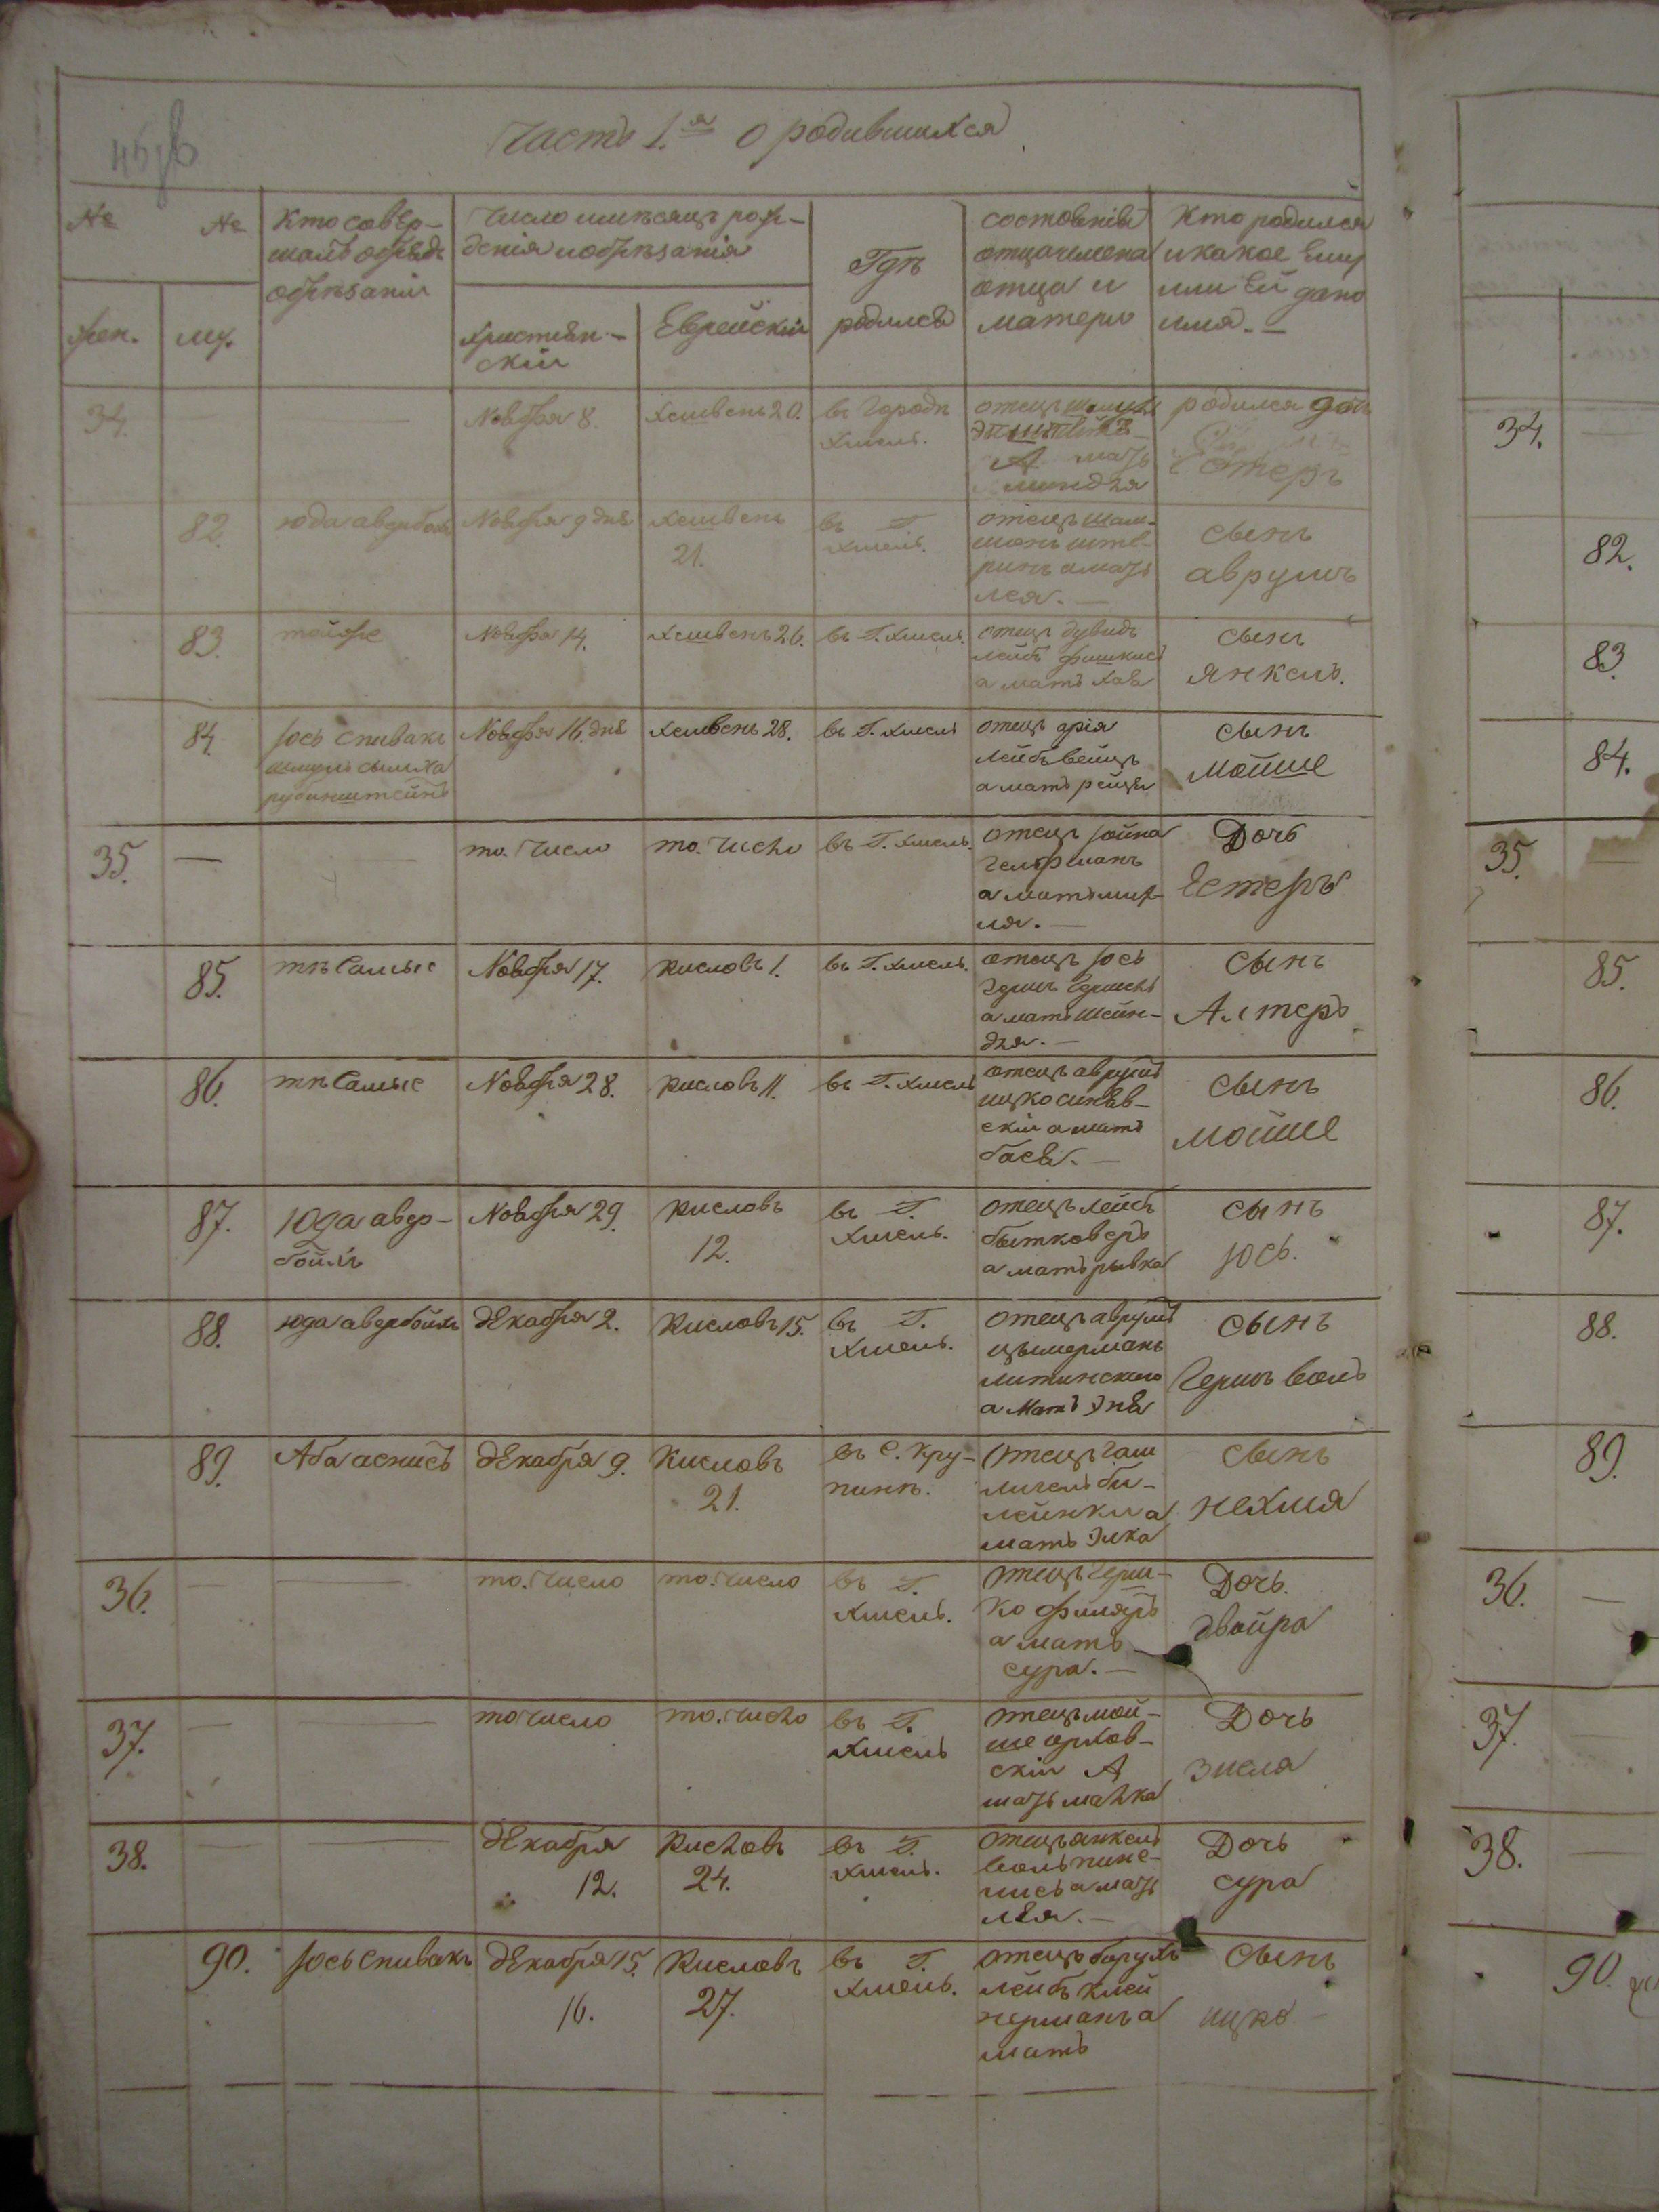 Часть 1.я о родившихся
№ №
жен. муж.
Кто совер-
шалъ обрядъ
обрѣзанія
Число имѣсяцъ рож-
денія иобрѣзанія
Христиан-
скій
Еврейскій
Гдѣ
родился
состояніе
отца имена
отца и
матери
Кто родился
икакое Ему
или Ей дано
имя. —
34. — — Ноября 8. Хешвень 20. въ Городѣ
Хмель.
отецъ
А мать
миндля
родился дочь
Естеръ
82. юда авербойхъ Ноября 9 дня Хешвень
21.
въ Г.
Хмель.
отецъ Шли-
а мать
лея. —
сынъ
аврумъ
83. тойже Ноября 14. Хешвень 26. въ Г. Хмель.
отецъ дувидъ
лейбъ
а мать Хава
сынъ
янкель.
84. Іось Спивакъ
рубинштейнъ
Ноября 16. дня Хешвень 28. въ Г. Хмель
отецъ арія
лейбъ вейцъ
а мать рейця
сынъ
Мойше
35. — — то. Число то. Число въ Г. Хмель.
отецъ Іойна
гелфманъ
а мать мир-
ля. —
Дочь
Естеръ
85. тѣ Самые Ноября 17. Кисловъ 1. въ Г. Хмель.
отецъ Іось
а мать шейн-
для. —
Сынъ
Алтеръ
86. тѣ Самые Ноября 28. Кисловъ 11. въ Г. Хмель
отецъ аврумъ
ицко синяв-
скій а мать
бася. —
сынъ
мойше
87. Юда авер-
бойхъ
Ноября 29. Кисловъ
12.
въ Г.
Хмель.
отецъ лейбъ
бытковеръ
а мать рывка
сынъ
Юсь.
88. юда авербойхъ дЕкабря 2. Кисловъ 15. въ Г.
Хмель.
отецъ аврумъ
цымерманъ
литинскаго
а Мать Эня
сынъ
Гершъ волъ
89. Аба аснисъ дЕкабря 9. Кисловъ
21.
въ С. Кру-
пинѣ.
отецъ
мать Элка
сынъ
нехмя
36. — — то. Число то. Число въ Г.
Хмель.
отецъ Герш-
ко
а мать
сура. —
Дочь.
двойра
37. — — то число то. Число въ Г.
Хмель
отецъ мой-
ше
скій А
мать малка
Дочь
зисля
38. — — дЕкабря
12.
Кисловъ
24.
въ Г.
Хмель.
отецъ янкель
воль пине-
а мать
лея. —
Дочь
сура
90. Іось Спивакъ дЕкабря 15.
16.
Кисловъ
27.
въ Г.
Хмель.
отецъ борухъ
лейбъ клей
нерманъ а
мать
сынъ
ицко
34.
82.
83.
84.
35.
85.
86.
87.
88.
89.
36.
37.
38.
90.